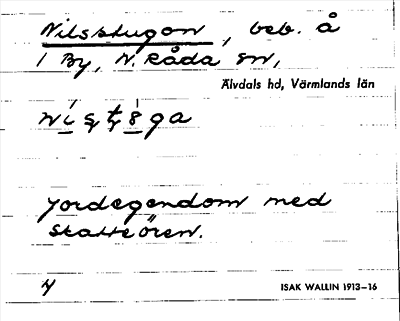 Nilsstugon, beb. å
1 By, N. Råda sn,
Älvdals hd, Värmlands län
Jordegendom med
skatteören.
ISAK WALLIN 1913–16